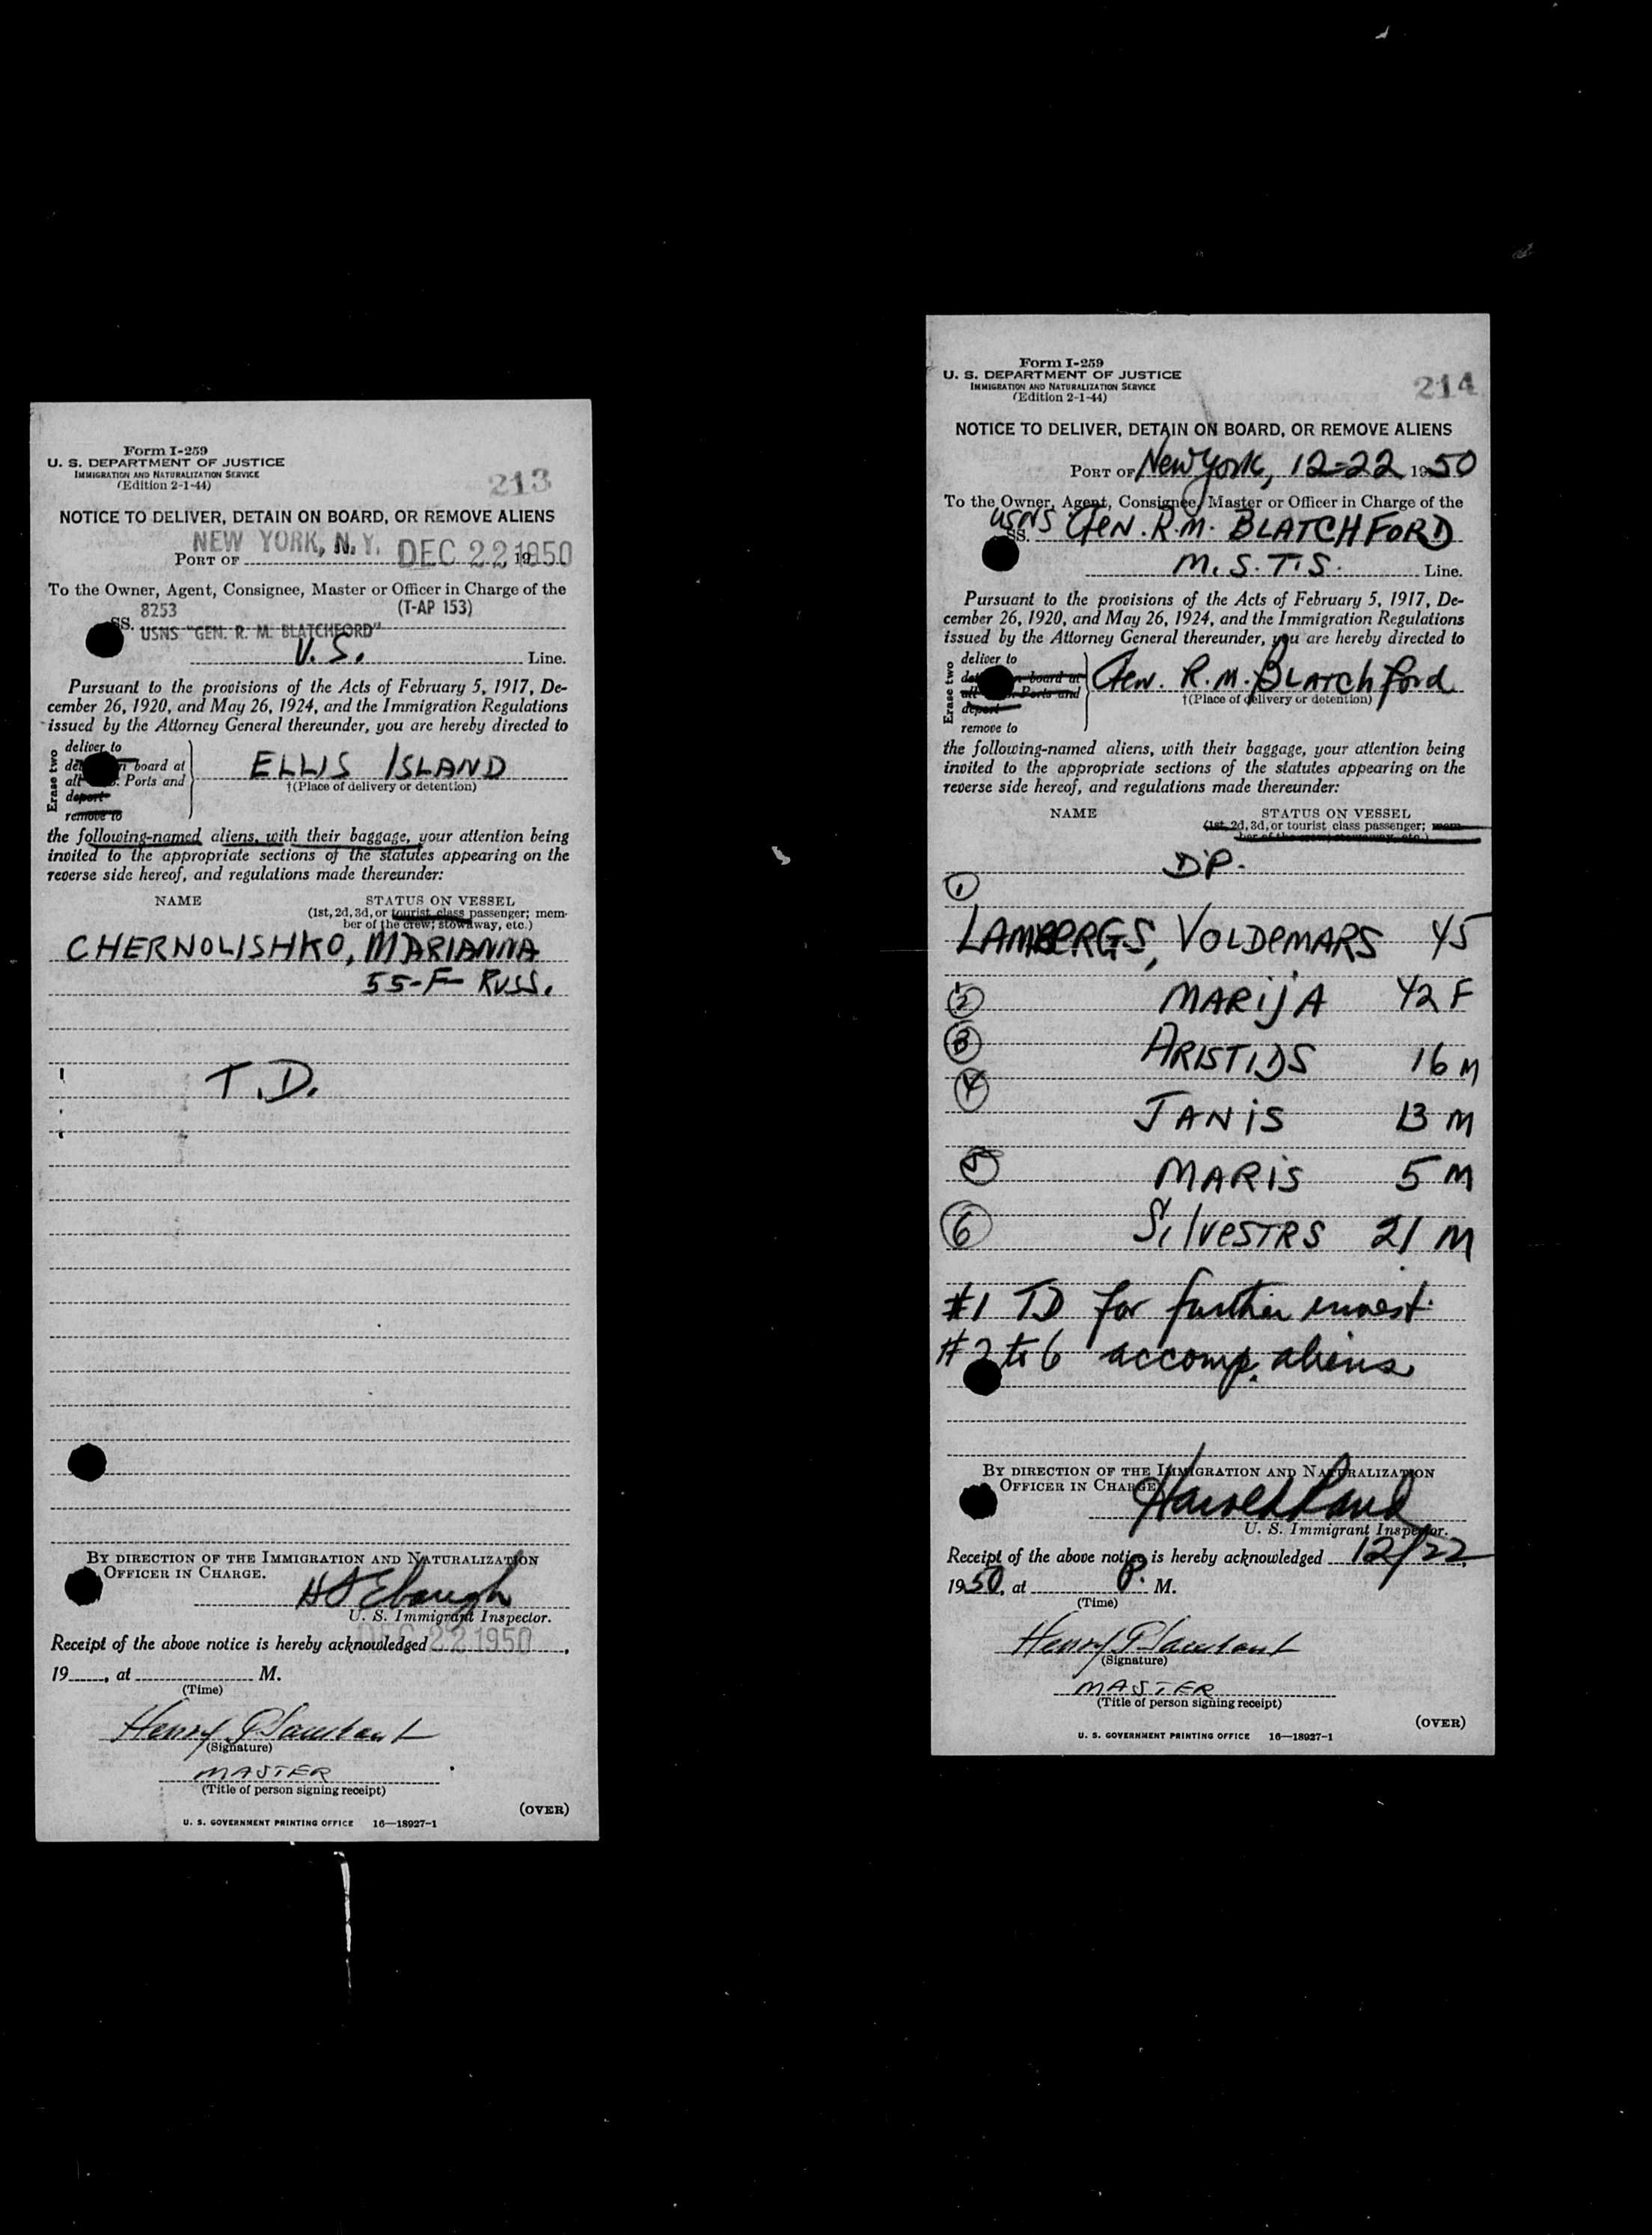 Form I-259
U. S. DEPARTMENT OF JUSTICE
IMMIGRATION AND NATURALIZATION SERVICE
(Edition 2-1-44)
213
NOTICE TO DELIVER, DETAIN ON BOARD, OR REMOVE ALIENS
NEW YORK, N.Y. DEC 22 1950
PORT OF , 19
To the Owner, Agent, Consignee, Master or Officer in Charge of the
8253 (T-AP 153)
SS. USNS "GEN. R. M. BLATCHFORD"
U.S. Line.
Pursuant to the provisions of the Acts of February 5, 1917, De-
cember 26, 1920, and May 26, 1924, and the Immigration Regulations
issued by the Attorney General thereunder, you are hereby directed to
Erase two
deliver to
board at
Ports and
deport
remove to
ELLIS ISLAND
†(Place of delivery or detention)
the following-named aliens, with their baggage, your attention being
invited to the appropriate sections of the statutes appearing on the
reverse side hereof, and regulations made thereunder:
NAME STATUS ON VESSEL
(1st, 2d, 3d, or tourist class passenger; mem-
ber of the crew; stowaway, etc.)
CHERNOLISHKO, MARIANNA
55-F RUSS.
T.D.
BY DIRECTION OF THE IMMIGRATION AND NATURALIZATION
OFFICER IN CHARGE.
U. S. Immigrant Inspector.
Receipt of the above notice is hereby acknowledged DEC 22 1950,
19 , at M.
(Time)
Henry
(Signature)
MASTER
(Title of person signing receipt)
(OVER)
U. S. GOVERNMENT PRINTING OFFICE 16—18927-1
Form I-259
U. S. DEPARTMENT OF JUSTICE
IMMIGRATION AND NATURALIZATION SERVICE
(Edition 2-1-44)
214
NOTICE TO DELIVER, DETAIN ON BOARD, OR REMOVE ALIENS
PORT OF New York, 12-22 1950
To the Owner, Agent, Consignee, Master or Officer in Charge of the
USNS SS. Gen. R.M. BLATCHFORD
M.S.T.S. Line.
Pursuant to the provisions of the Acts of February 5, 1917, De-
cember 26, 1920, and May 26, 1924, and the Immigration Regulations
issued by the Attorney General thereunder, you are hereby directed to
Erase two
deliver to
board at
Ports and
deport
remove to
Gen. R.M. Blatchford
†(Place of delivery or detention)
the following-named aliens, with their baggage, your attention being
invited to the appropriate sections of the statutes appearing on the
reverse side hereof, and regulations made thereunder:
NAME STATUS ON VESSEL
(1st, 2d, 3d, or tourist class passenger; mem-
ber of the crew; stowaway, etc.)
D.P.
1
LAMBERGS, VOLDEMARS 45
2 MARIJA 42 F
3 ARISTIDS 16 M
4 JANIS 13 M
5 MARIS 5 M
6 SILVESTRS 21 M
#1 TD for further invest.
#2 to 6 accomp. aliens
BY DIRECTION OF THE IMMIGRATION AND NATURALIZATION
OFFICER IN CHARGE.
U. S. Immigrant Inspector.
Receipt of the above notice is hereby acknowledged 12/22,
1950, at P. M.
(Time)
Henry
(Signature)
MASTER
(Title of person signing receipt)
(OVER)
U. S. GOVERNMENT PRINTING OFFICE 16—18927-1